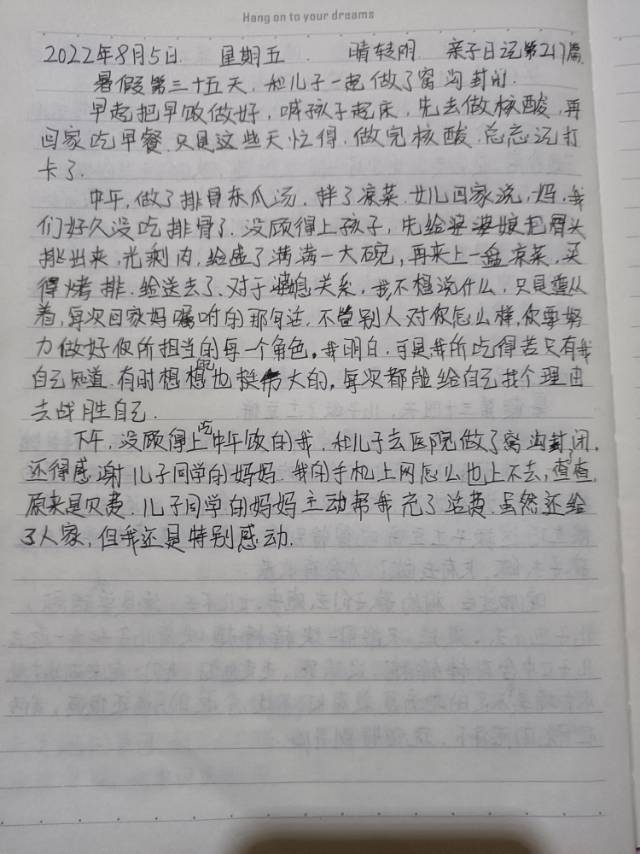 Hang on to your dreams
2022年8月5日 星期五 晴转阴 亲子日记第217篇
暑假第三十五天,和儿子一起做了窝沟封闭.
早起把早饭做好,喊孩子起床,先去做核酸,再
回家吃早餐.只是这些天忙得,做完核酸,总忘记打
卡了.
中午,做了排骨冬瓜汤,拌了凉菜.女儿回家说,妈,我
们好久没吃排骨了.没顾得上孩子,先给婆婆娘把骨头
挑出来,光剩肉,给盛了满满一大碗,再来上一盘凉菜,买
得烤排,给送去了.对于婆媳关系,我不想说什么,只是遵从
着,每次回家妈嘱咐的那句话,不管别人对你怎么样,你要努
力做好你所担当的每一个角色.我明白,可是我所吃得苦只有我
自己知道.有时想想自己也挺伟大的,每次都能给自己找个理由
去战胜自己.
下午,没顾得上吃中午饭的我,和儿子去医院做了窝沟封闭.
还得感谢儿子同学的妈妈.我的手机上网怎么也上不去,查查,
原来是欠费.儿子同学的妈妈主动帮我充了话费.虽然还给
了人家,但我还是特别感动.